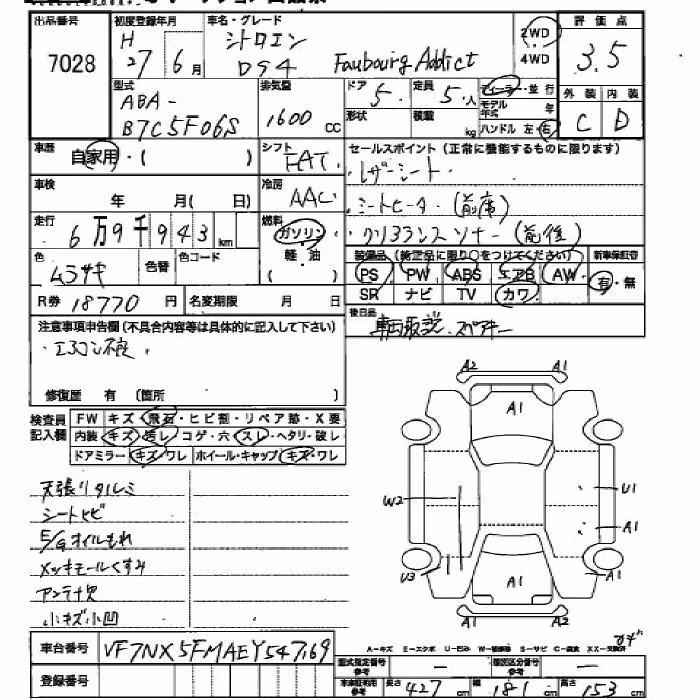 出品番号 初度登録年月 車名・グレード 評価点
7028 H 27 6月 シトロエン DS4 Faubourg Addict 2WD 4WD 3.5
型式 排気量 ドア 定員 ディーラー・並行 外装 内装
ABA-
B7C5F06S 1600 CC 5 5人 モデル年式 年 C D
形状 積載 kg ハンドル 左・右
車歴 自家用・( ) シフト FAT セールスポイント(正常に機能するものに限ります)
・レザーシート
車検 年 月( 日) 冷房 AAC
・シートヒータ (前席)
走行 6万9千943km 燃料 ガソリン
・クリアランスソナー (前後)
軽・油
( )
色 ムラサキ 色替 色コード
装備品(純正品に限り○をつけてください) 新車保証書
PS PW ABS エアB AW 有・無
SR ナビ TV カワ
R券 18770円 名変期限 月 日
後日品
車両取説、スペアキー
注意事項申告欄(不具合内容等は具体的に記入して下さい)
・エアコン不良、
修復歴 有 (箇所 )
検査員記入欄 FW キズ・飛石・ヒビ割・リペア跡・X要
内装 キズ・汚レ・コゲ・穴・スレ・ヘタリ・破レ
ドアミラー キズ・ワレ ホイール・キャップ キズ・ワレ
天張リタルミ
シートヒビ
E/Gオイルもれ
メッキモールくすみ
アンテナ欠
小キズ小凹
A2 A1
A1
W2 U1
A1
U3 A1 A1
A2 A1
車台番号 VF7NX5FMAEY547169
A-キズ E-エクボ U-凹み W-補修跡 S-サビ C-腐食 XX-交換済
型式指定番号 参考 - 類別区分番号 参考 -
登録番号 車庫証明用参考 長さ 427cm 幅 181cm 高さ 153cm